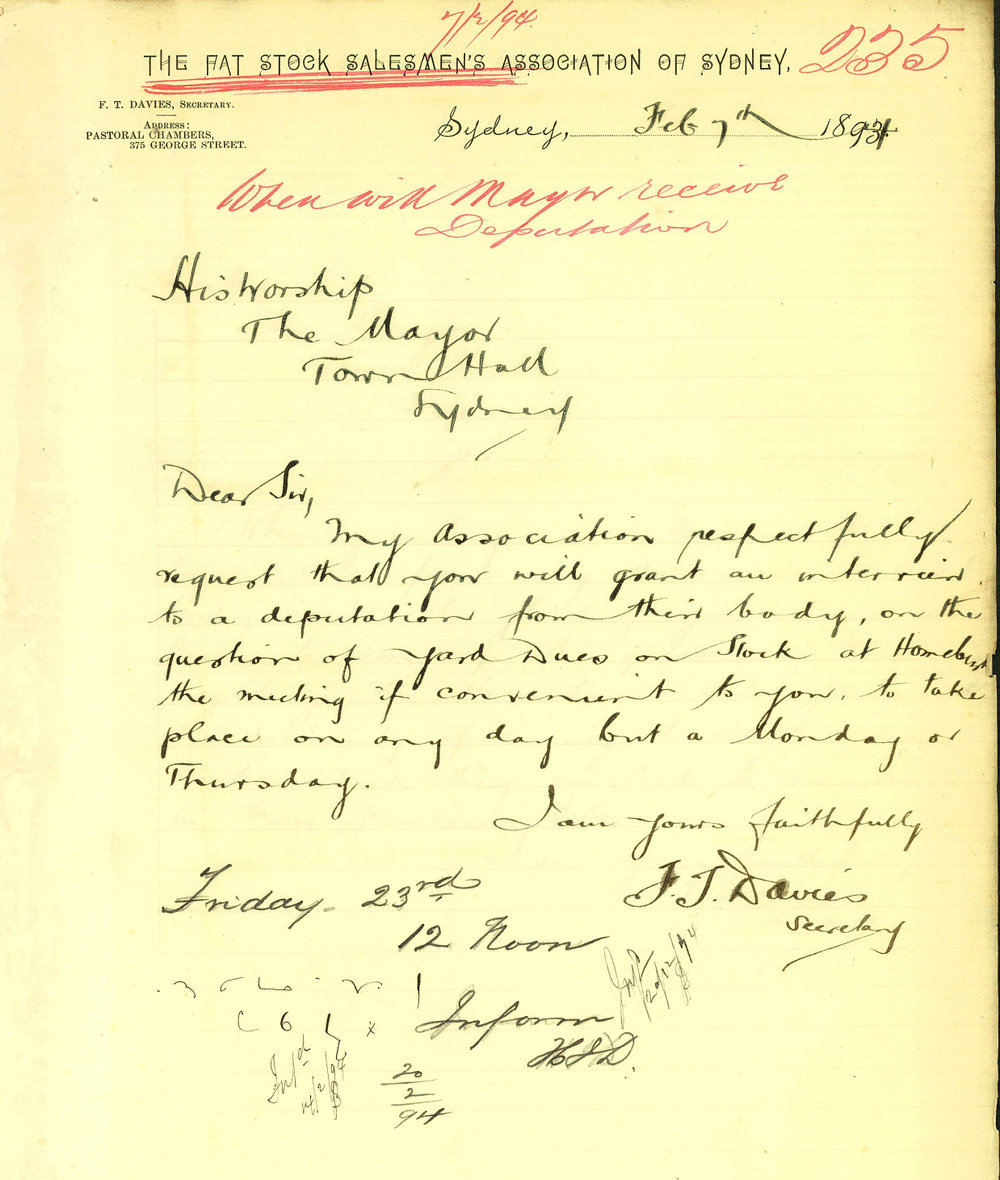 7/2/94
THE FAT STOCK SALESMEN'S ASSOCIATION OF SYDNEY,
235
F. T. DAVIES, SECRETARY.
ADDRESS:
PASTORAL CHAMBERS,
375 GEORGE STREET.
Sydney, Feb 7th 1894
When will Mayor receive
Deputation
His Worship
The Mayor
Town Hall
Sydney
Dear Sir,
My Association respectfully
request that you will grant an interview
to a deputation from their body, on the
question of Yard Dues on Stock at Homebush
the meeting if convenient to you, to take
place on any day but a Monday or
Thursday.
I am yours faithfully
F. T. Davies
Secretary
Friday 23rd
12 Noon
Inform
20
2
94